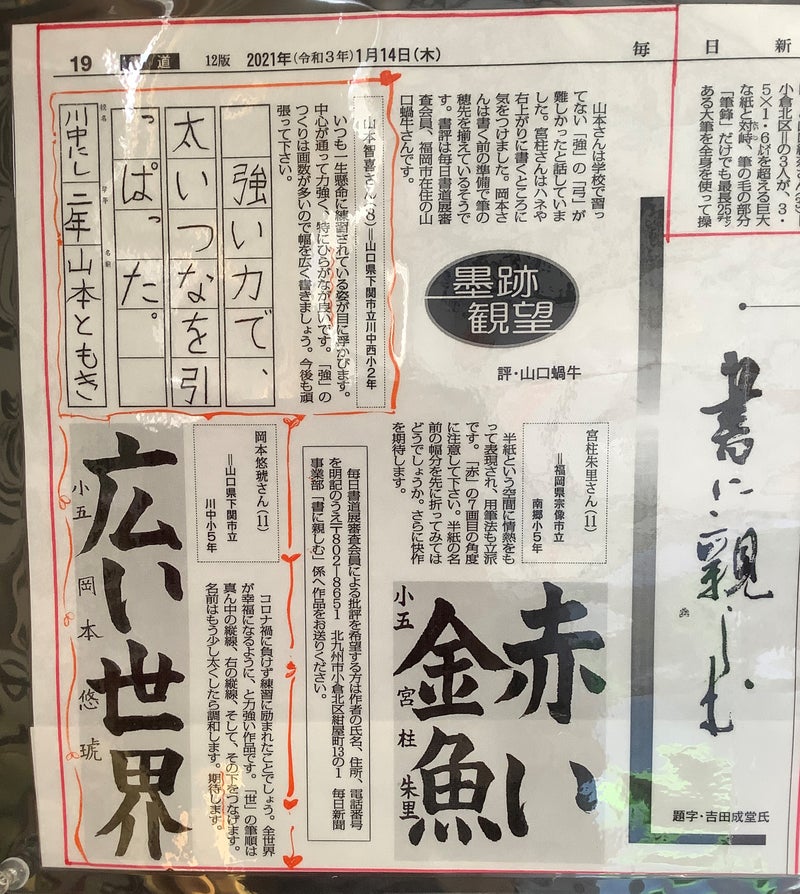 19
道
12版
2021年(令和3年)1月14日(木)
毎
日
新
小倉北区―の3人が、3・
5×1・6㍍を超える巨大
な紙と対峙、筆の毛の部分
「筆鋒」だけでも最長25㌢
ある大筆を全身を使って操
書に親しむ
題字・吉田成堂氏
山本さんは学校で習っ
てない「強」の「弓」が
難しかったと話していま
した。宮柱さんはハネや
右上がりに書くところに
気をつけました。岡本さ
んは書く前の準備で筆の
穂先を揃えているそうで
す。書評は毎日書道展審
査会員、福岡市在住の山
口蝸牛さんです。
墨跡
観望
評・山口蝸牛
山本智喜さん(8)=山口県下関市立川中西小2年
いつも一生懸命に練習されている姿が目に浮かびます。
中心が通って力強く、特にひらがなが良いです。「強」の
つくりは画数が多いので幅を広く書きましょう。今後も頑
張って下さい。
強い力で、
太いつなを引
っぱった。
校名
学年
名前
川中にし
二年
山本ともき
宮柱朱里さん(11)
=福岡県宗像市立
南郷小5年
半紙という空間に情熱をも
って表現され、用筆法も立派
です。「赤」の7画目の角度
に注意して下さい。半紙の名
前の幅分を先に折ってみては
どうでしょうか。さらに快作
を期待します。
赤い
金魚
小五 宮柱朱里
毎日書道展審査会員による批評を希望する方は作者の氏名、住所、電話番号
を明記のうえ〒802-8651 北九州市小倉北区紺屋町13の1 毎日新聞
事業部「書に親しむ」係へ作品をお送りください。
岡本悠琥さん(11)
=山口県下関市立
川中小5年
コロナ禍に負けず練習に励まれたことでしょう。全世界
が幸福になるように、と力強い作品です。「世」の筆順は
真ん中の縦線、右の縦線、そして、その下をつなげます。
名前はもう少し太くしたら調和します。期待します。
広い世界
小五 岡本悠琥